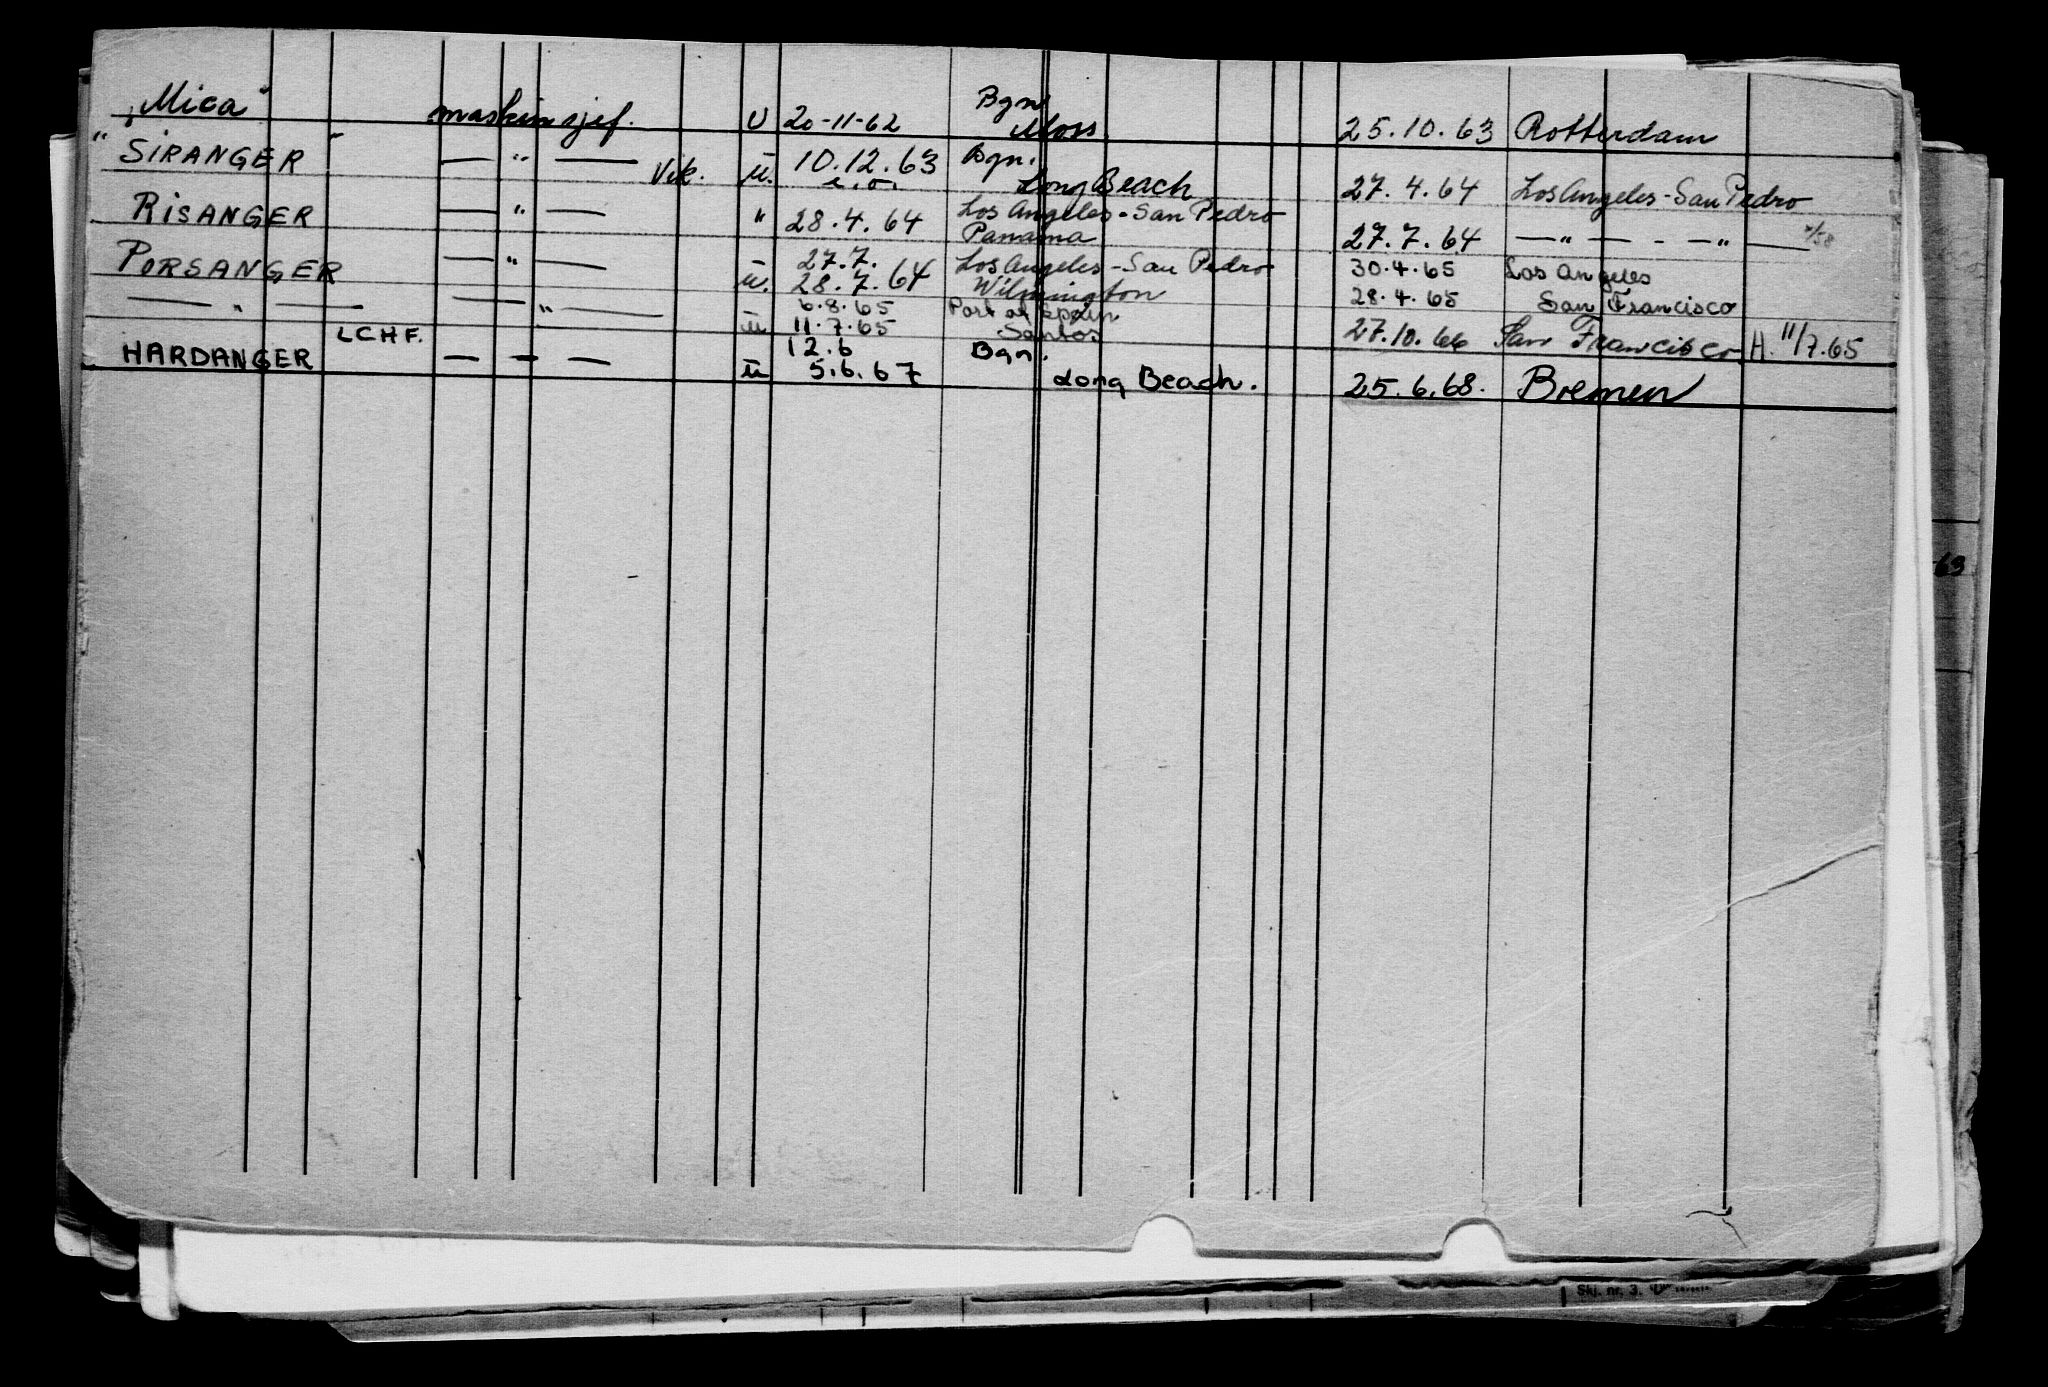 „Mica" maskinsjef. U 20-11-62 Bgn Moss 25.10.63 Rotterdam
" SIRANGER " — " — Vik. u. 10.12.63 Bgn.
Long Beach 27.4.64 Los Angeles - San Pedro
RISANGER — " — " 28.4.64 Los Angeles - San Pedro
Panama 27.7.64 — " — - — " —
PORSANGER — " — 27.7. Los Angeles - San Pedro 30.4.65 Los Angeles
u. 28.7.64 Wilmington 28.4.65 San Francisco
— " — — " — 6.8.65 Port of Spain
u 11.7.65 Santos 27.10.66 San Francisco H. 11/7.65
HARDANGER LCHF. — — — 12.6 Bgn.
u 5.6.67 Long Beach. 25.6.68. Bremen
63
Skj. nr. 3.